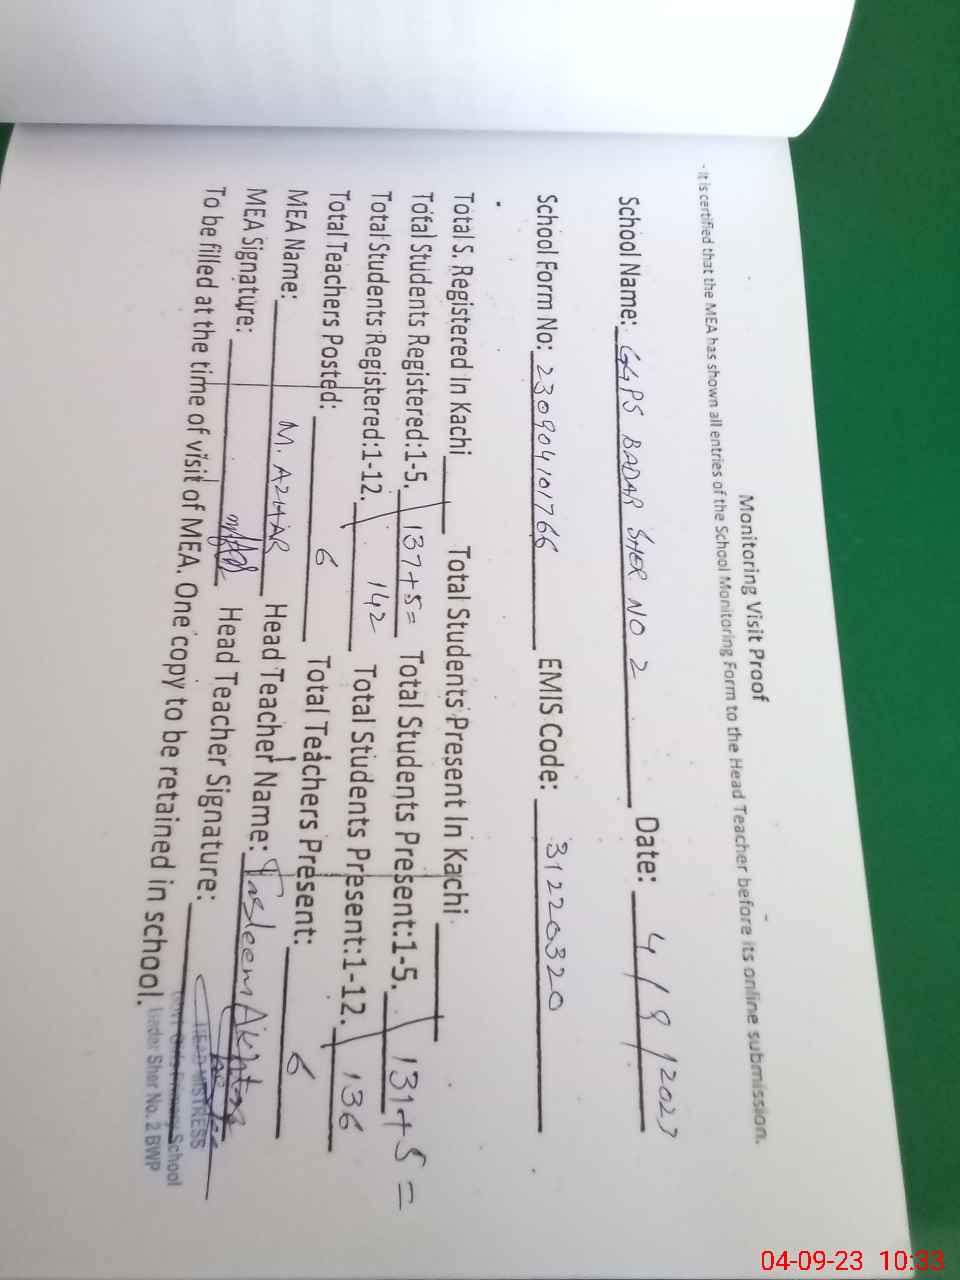 Monitoring Visit Proof
- It is certified that the MEA has shown all entries of the School Monitoring Form to the Head Teacher before its online submission.
School Name: GGPS BADAR SHER NO 2 Date: 4/9/2023
School Form No: 230904101766 EMIS Code: 31220320
Total S. Registered In Kachi Total Students Present In Kachi
Total Students Registered:1-5. 137+5= Total Students Present:1-5. 131+5=
Total Students Registered:1-12. 142 Total Students Present:1-12. 136
Total Teachers Posted: 6 Total Teachers Present: 6
MEA Name: M. AZHAR Head Teacher Name: Tasleem Akhtar
MEA Signature: Head Teacher Signature:
HEAD MISTRESS
Govt Girls Primary School
Bader Sher No. 2 BWP
To be filled at the time of visit of MEA. One copy to be retained in school.
04-09-23 10:33